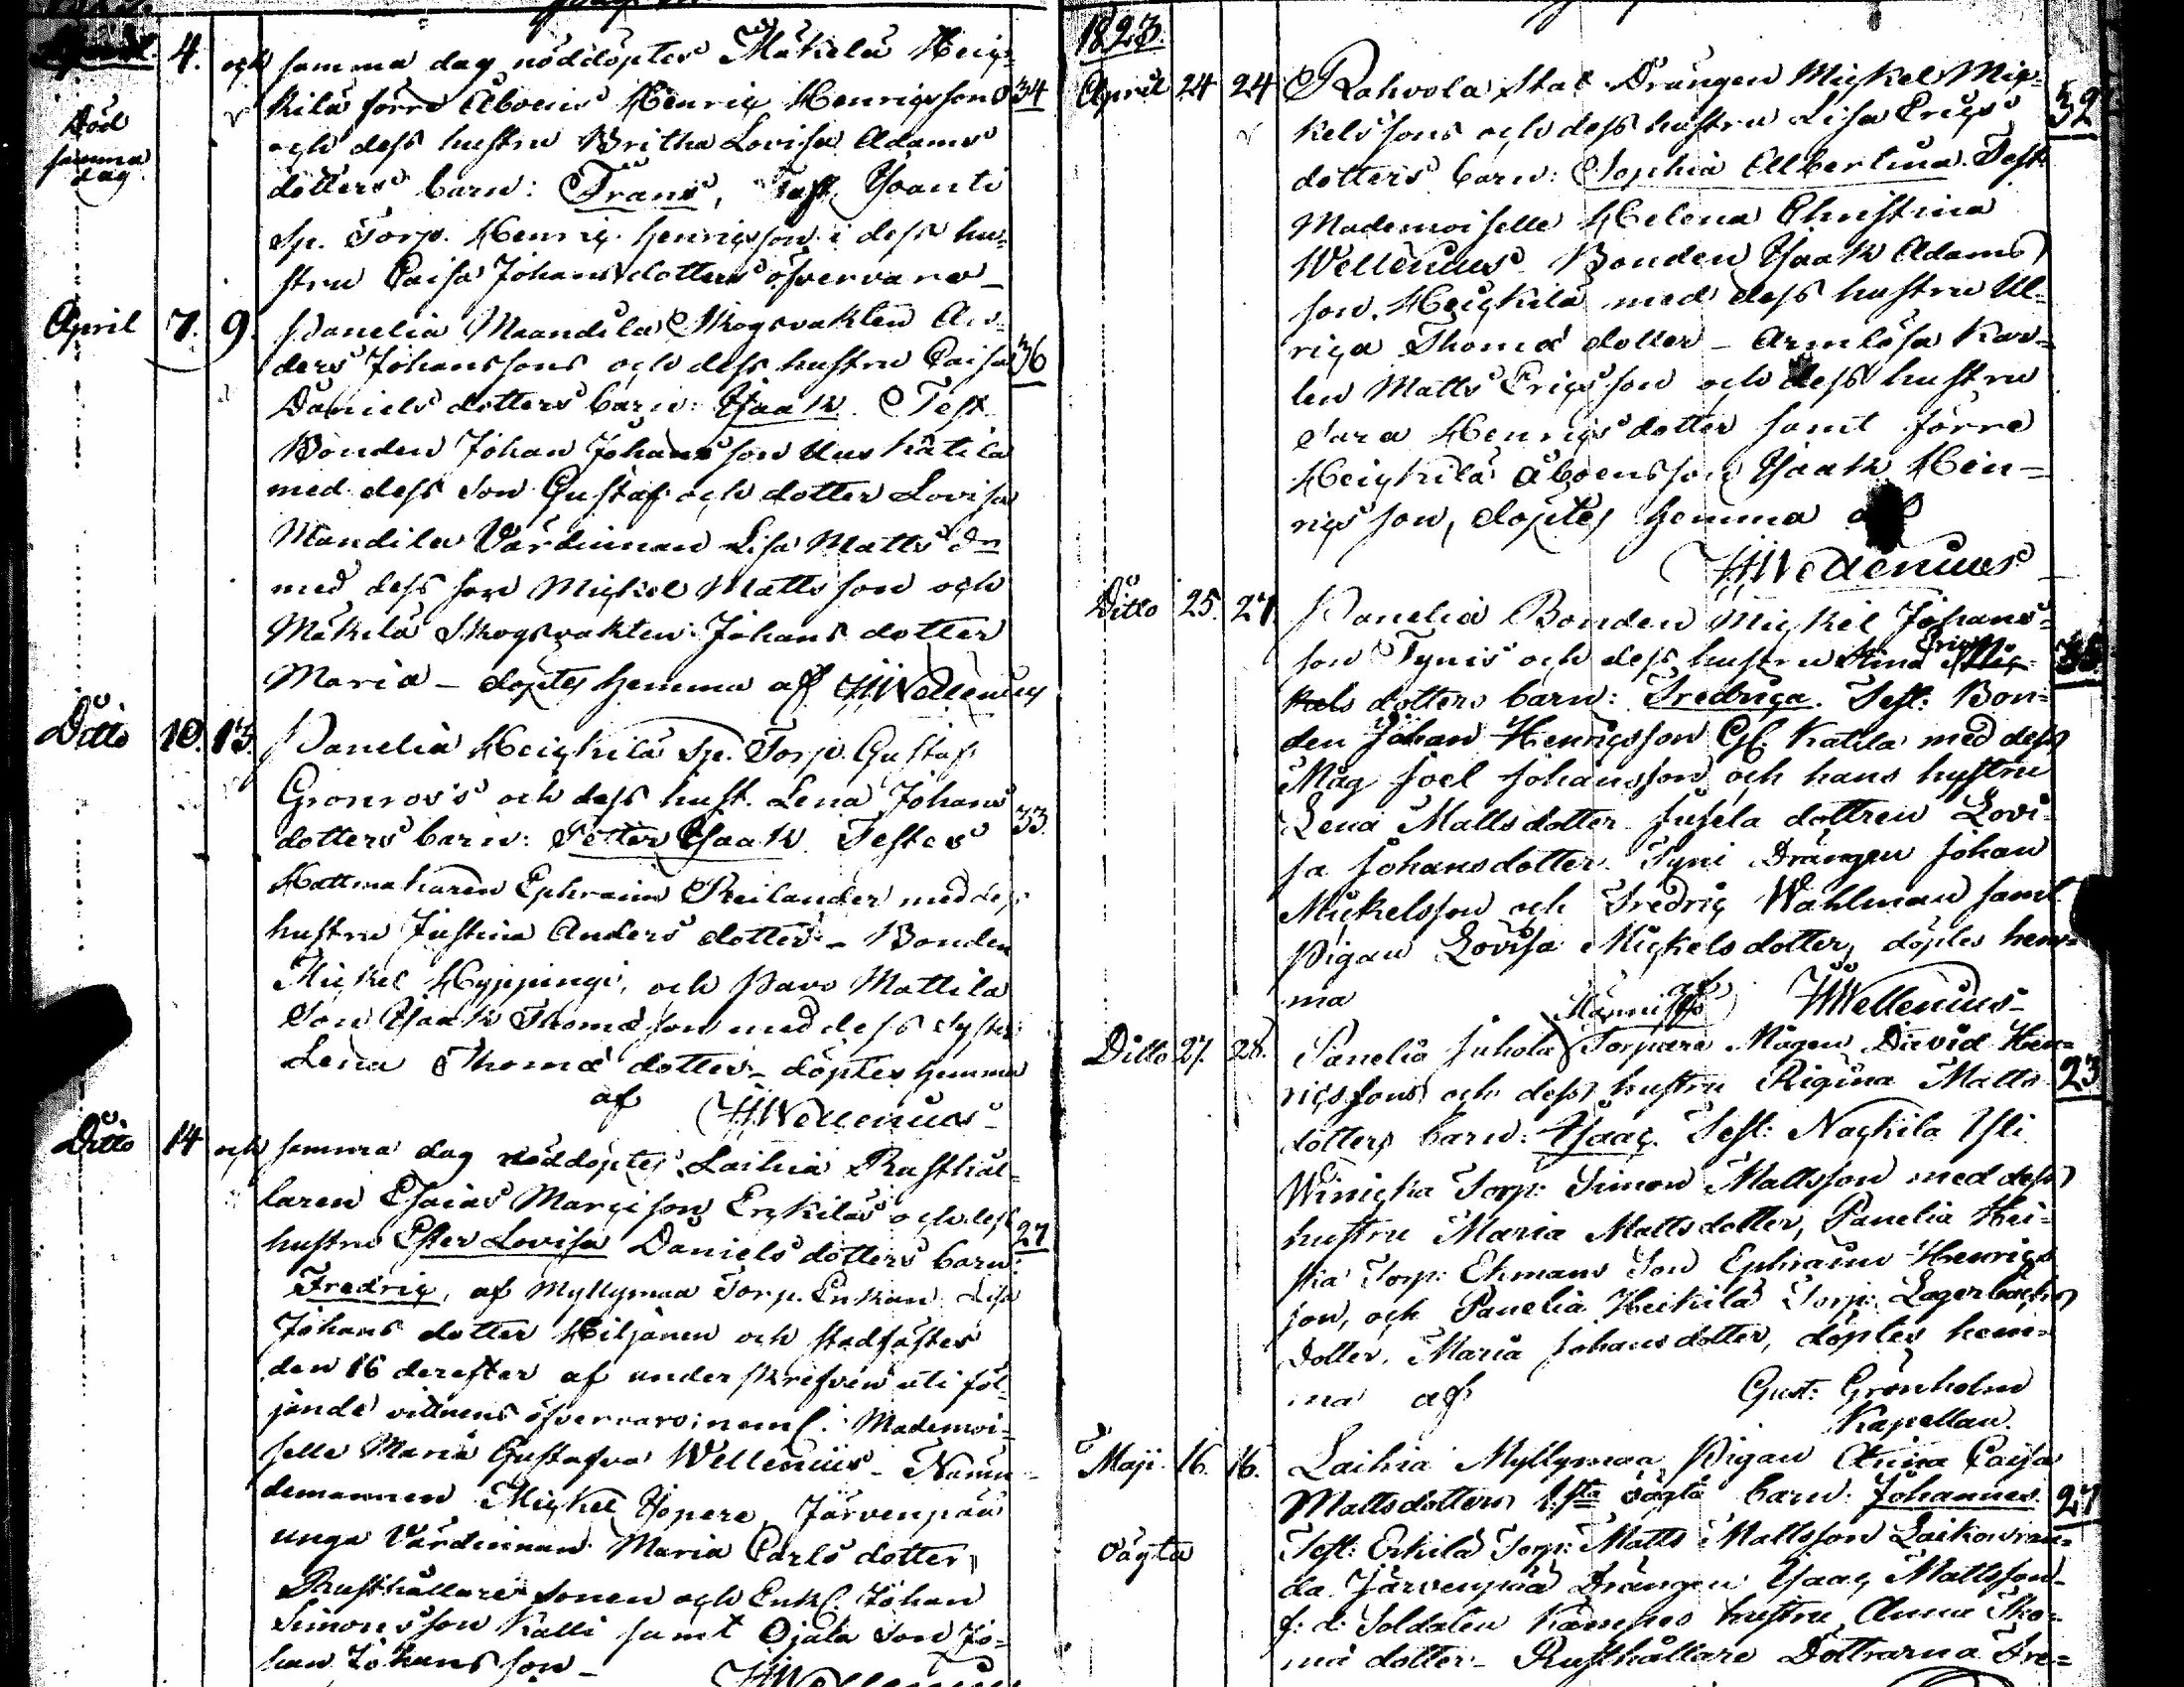 April 4. och samma dag nöddöptes Mäkelä Heic-
kilä förre Åboens Henric Henricssons 34
Död samma dag
och dess hustru Britha Lovisa Adams
dotters barn: Frans, Test. Yoanti
Sp. Torp. Henric Henricsson i dess hu-
stru Caisa Johansdotters öfvervaro _
April 7. 9. Panelia Maandila Skogsvakten An-
ders Johanssons och dess hustru Caisa 36
Daniels dotters barn: Isaak. Test.
Bonden Johan Johansson Uus kätilä
med dess Son Gustaf och dotter Lovisa
Mandila Värdinnan Lisa Matts dr
med dess son Mickel Mattsson och
Mäkilä Skogsvakten Johans dotter
Maria _ döptes hemma af HWellenius
Ditto 10. 13. Panelia Heickilä Sp. Torp. Gustaf
Gronroos's och dess hust. Lena Johans
dotters barn: Petter Isaak Testes 33.
Hattmakaren Ephraim Reilander med dess
hustru Justina Anders dotter _ Bonden
Mickel Hyppingi, och Pavo Mattila
Son Isaak Thomæ son med dess Syster
Lena Thomæ dotter _ döptes hemma
af HWellenius
Ditto 14 och samma dag nöddöptes Laihia Rusthål-
laren Esaias Marcisson Erckiläs och dess
hustru Ester Lovisa Daniels dotters barn: 27
Fredric, af Myllymaa Torp. Enkan Lisa
Johans dotter Hiljanen och stadfästes
den 16 derefter af underskrefven uti föl-
jande vittnens öfvervaro: neml. Mademoi-
selle Maria Gustafva Wellenius _ Nämn-
demannen Mickel Yopere, Järvenpää
unga Värdinnan Maria Carls dotter
Rusthållare Sonen och Enkl. Johan
Simonsson Kalli samt Ojala Son Jo-
han Johansson _
HWellenius
1823.
April 24 24 Rahvola Stat Drängen Mickel Mic-
kels sons och dess hustru Lisa Erics 32
dotters barn: Sophia Albertina. Test.
Mademoiselle Helena Christina
Wellenius Bonden Isaak Adams
son. Heickilä med dess hustru Ul-
rica Thomæ dotter _ Armlösa Kar-
len Matts Ericsson och dess hustru
Sara Henrics dotter samt förre
Heickilä Åboens son Isaak Hen-
rics son, döptes hemma af
HWellenius
Ditto 25. 27. Panelia Bonden Mickel Johans-
son Tynis och dess hustru Stina Erics Mic- 35
kels dotters barn: Fredrica. Test: Bon-
den Johan Henricsson Gl. Katila med dess
Måg Joel Johansson och hans hustru
Lena Mattsdotter Jusela dottren Lovi-
sa Johansdotter. Tyni Drängen Johan
Mickelsson och Fredric Wahlman samt
Pigan Lovisa Mickelsdotter, döptes hem-
ma af HWellenius
Ditto 27. 28. Panelia Juhola Torpare Mågen David Hen-
ricssons och dess hustru Regina Matts 23
dotters barn: Isaac. Test: Nackila Yli
Winicka Torp: Simon Mattsson med dess
hustru Maria Mattsdotter, Panelia Hei-
Torp: Ekmans Son Ephraim Henrics
son, och Panelia Heikilä Torp: Lagerbäcks
Dotter, Maria Johansdotter, döptes hem-
ma af Gust: Grönholm
Kapellan.
Maji 16. 16. Laihia Myllymaa Pigan Anna Caisa
Mattsdotters 1:sta oägta barn: Johannes. 27
oägta Test: Erkilä Torp: Matts Mattsson Laikonran-
da. Järvenpää Drängen Isaac Mattsson _
f: d: Soldaten Kämpes hustru Anna Tho-
mæ dotter _ Rusthållare Döttrarna Fre-